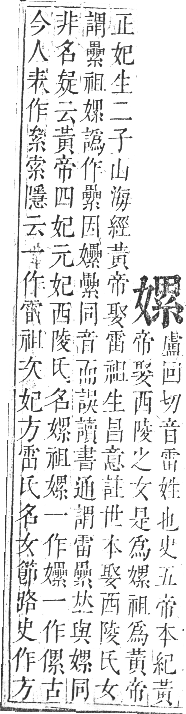 嫘
盧回切音雷姓也史五帝本紀黃
帝娶西陵之女是爲嫘祖爲黃帝
正妃生二子山海經黃帝娶雷祖生昌意註世本娶西陵氏女
謂纍祖嫘譌作纍因纍同音而誤讀書通謂雷纍𠀤與嫘同
非名疑云黃帝四妃元妃西陵氏名嫘祖嫘一作一作傫古
今人表作絫索隱云一作雷祖次妃方雷氏名女節路史作方